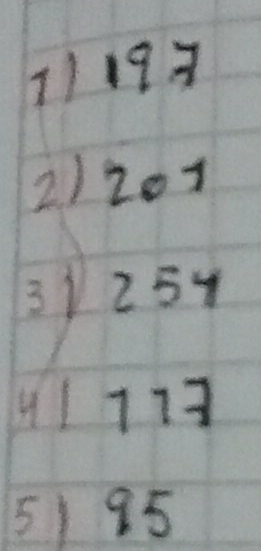 1) 197
2) 201
3) 254
4) 117
5) 95